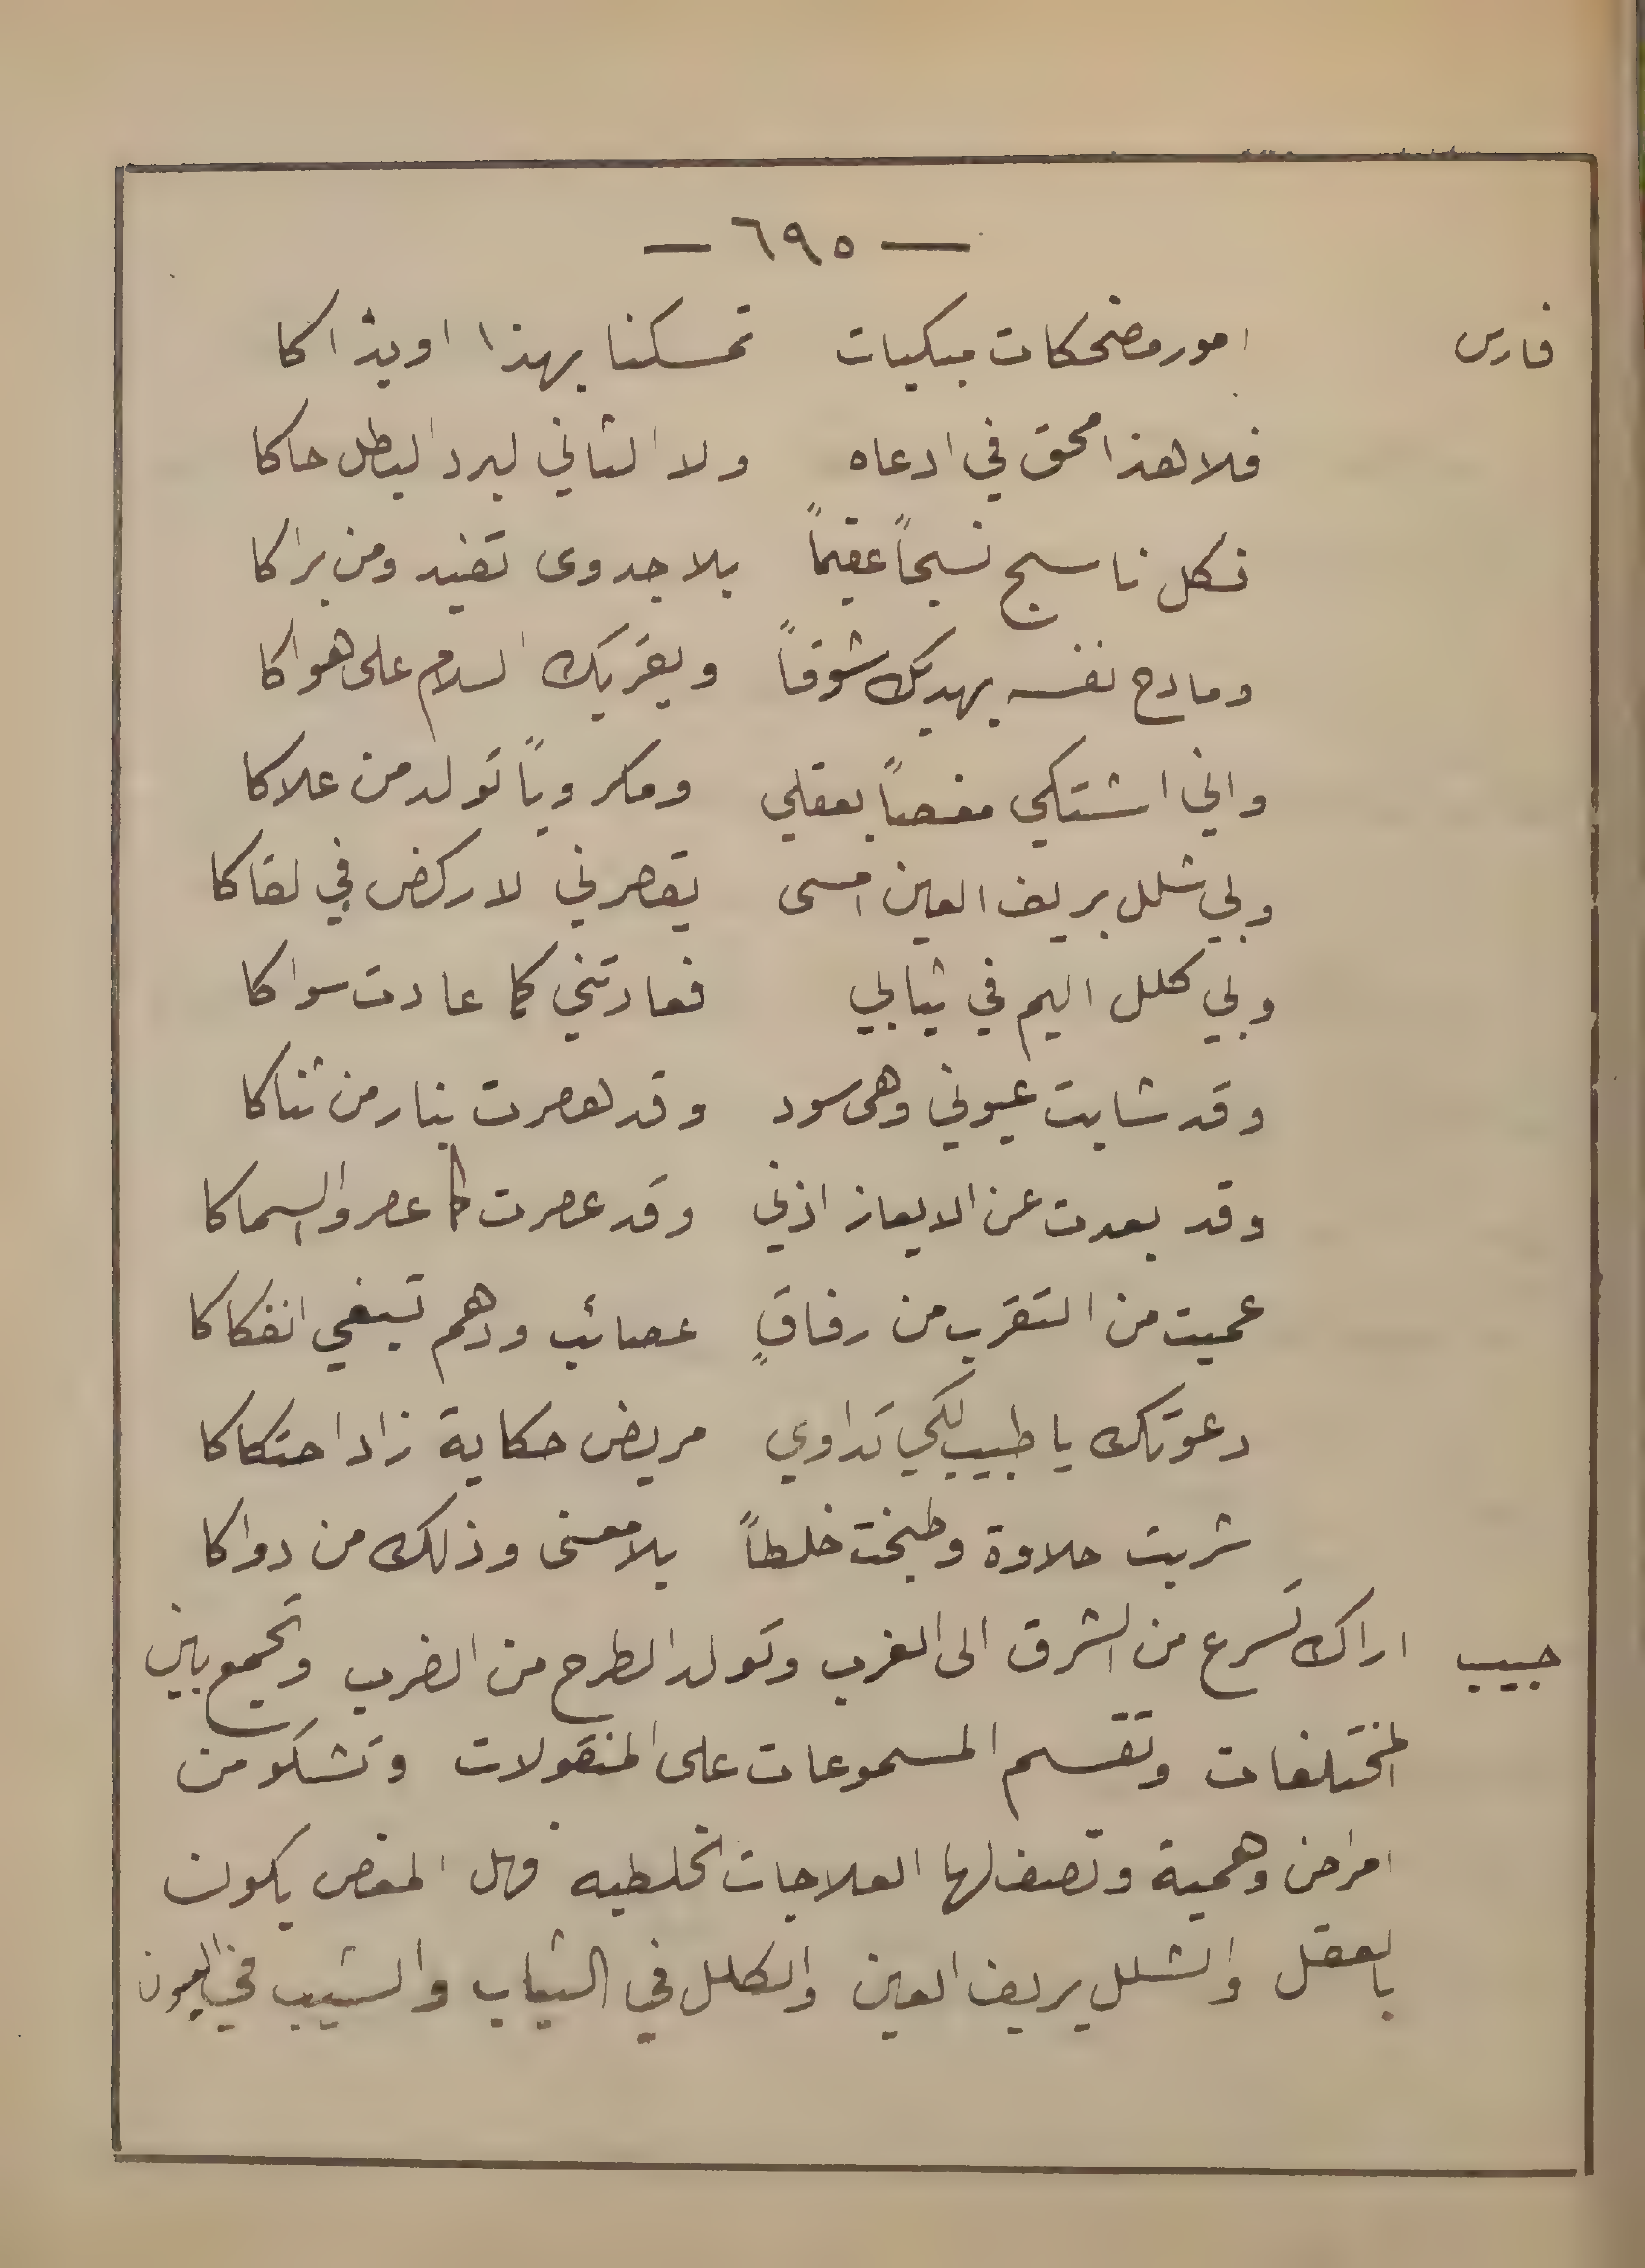 — ٦٩٥ —
فارس امور مضحكات مبكيات تمسكنا بهذا او بذاكا
فلا هذا محق في ادعاه ولا الثاني لبرد البطل حاكا
فكل ناسج نسيجاً عقيماً بلا جدوى تفيد ومن براكا
ومادح نفسه يهديك شوقاً ويقريك السلام على هواكا
واني اشتكي مغصاً بعقلي ومكروباً تولد من علاكا
وبي شلل بريف العين امسى يقصرني لاركض في لقاكا
وبي كلل اليم في ثيابي فعادتني كما عادت سواكا
وقد شابت عيوني وهى سود وقد هصرت بنار من ثناكا
وقد بعدت عن الايعاز اذني وقد عصرت كما عصروا السماكا
عميت من التقرب من رفاقٍ عصائب ودهم تبغي انفكاكا
دعوتك يا طبيب لكي تداوي مريض حكاية زاد احتكاكا
شربت حلاوة وطبخت خلطاً بلا معنى وذلك من دواكا
حبيب اراك تسرع من الشرق الى الغرب وتولد الطرح من الضرب وتجمع بين
المختلفات وتقسم المسموعات على المنقولات وتشكو من
امراض وهمية وتصف لها العلاجات الخلطيه فهل المغص يكون
بالعقل والشلل بريف العين والكلل في الثياب والشيب في العيون